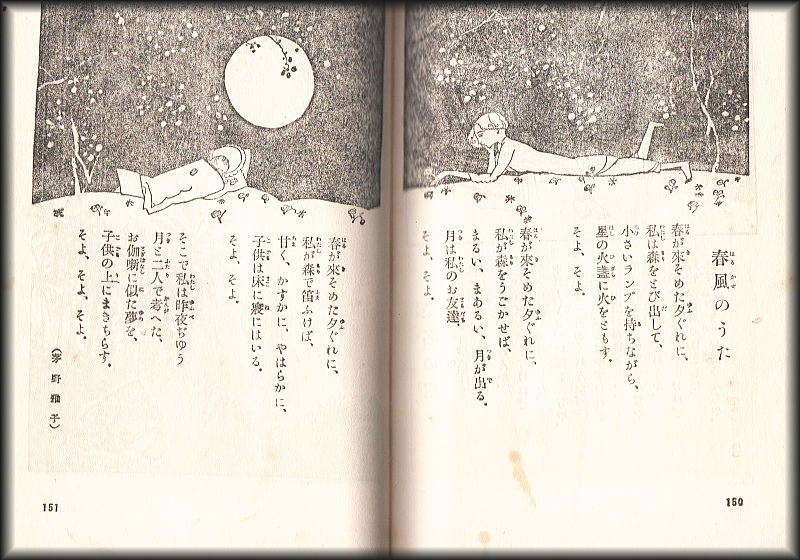 春風のうた
春が來そめた夕ぐれに、
私は森をとび出して、
小さいランプを持ちながら、
星の火盞に火をともす。
そよ、そよ。
春が來そめた夕ぐれに、
私が森をうごかせば、
まるい、まあるい、月が出る。
月は私のお友達、
そよ、そよ。
150
春が來そめた夕ぐれに、
私が森で笛ふけば、
甘く、かすかに、やはらかに、
子供は床に寢にはいる。
そよ、そよ。
そこで私は昨夜ぢゆう
月と二人で考へた、
お伽噺に似た夢を、
子供の上にまきちらす。
そよ、そよ、そよ。
(茅野雅子)
151